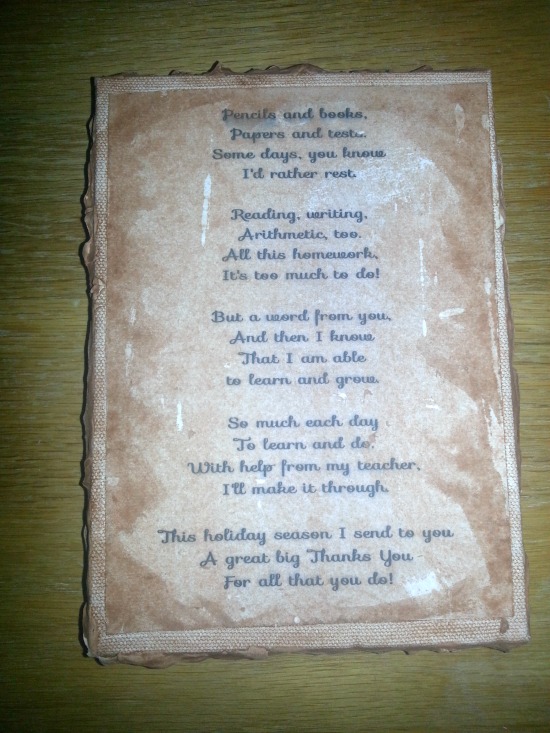 Pencils and books,
Papers and tests.
Some days, you know
I'd rather rest.
Reading, writing,
Arithmetic, too.
All this homework,
It's too much to do!
But a word from you,
And then I know
That I am able
to learn and grow.
So much each day
To learn and do.
With help from my teacher,
I'll make it through.
This holiday season I send to you
A great big Thanks You
For all that you do!